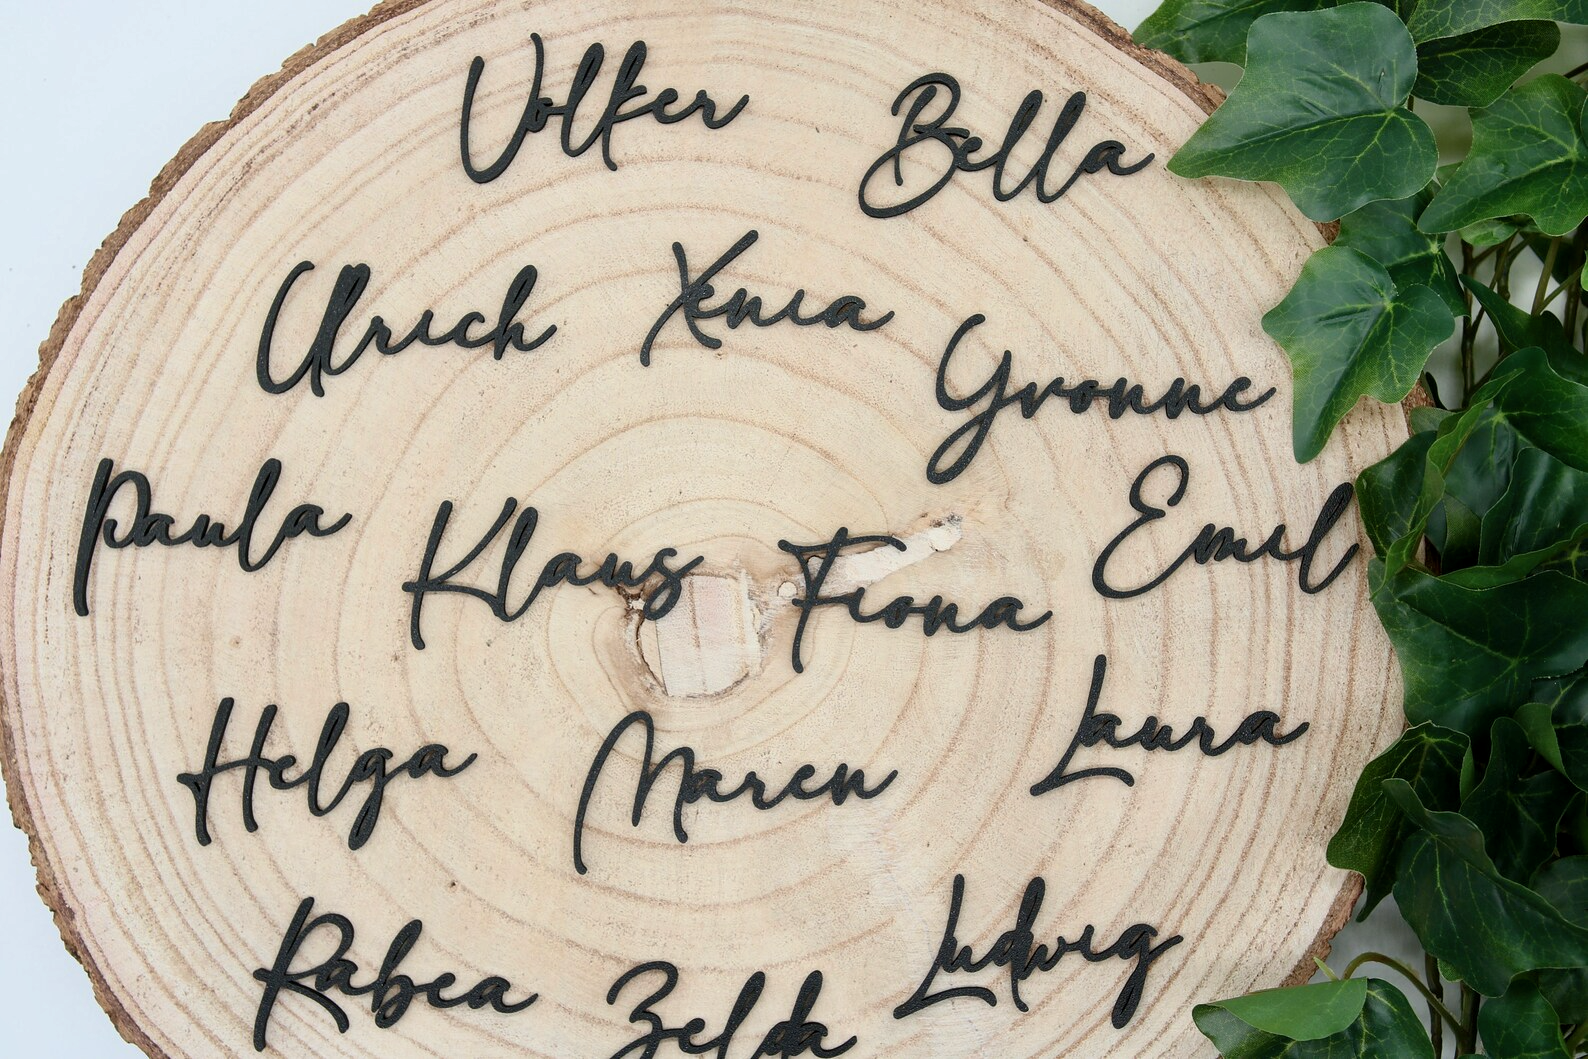 Volker Bella
Ulrich Xenia Yvonne
Paula Klaus Fiona Emil
Helga Maren Laura
Rabea Zelda Ludwig